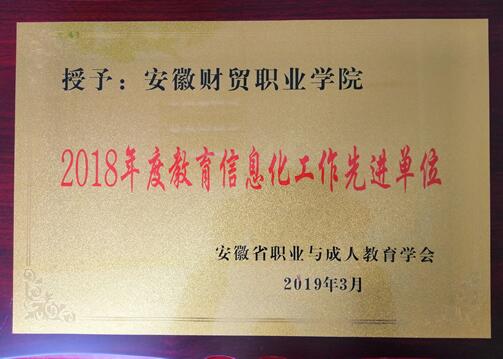 授予：安徽财贸职业学院
2018年度教育信息化工作先进单位
安徽省职业与成人教育学会
2019年3月